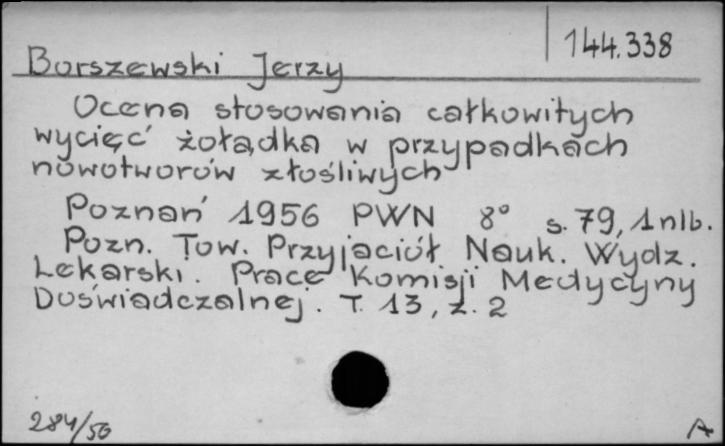 144.338
Burszewski Jerzy
Ocena stosowania całkowitych
wycięć żołądka w przypadkach
nowotworów złośliwych
Poznań 1956 PWN 8° s. 79, 1 nlb.
Pozn. Tow. Przyjaciół Nauk. Wydz.
Lekarski. Prace Komisji Medycyny
Doświadczalnej. T. 13, z. 2
284/56
A